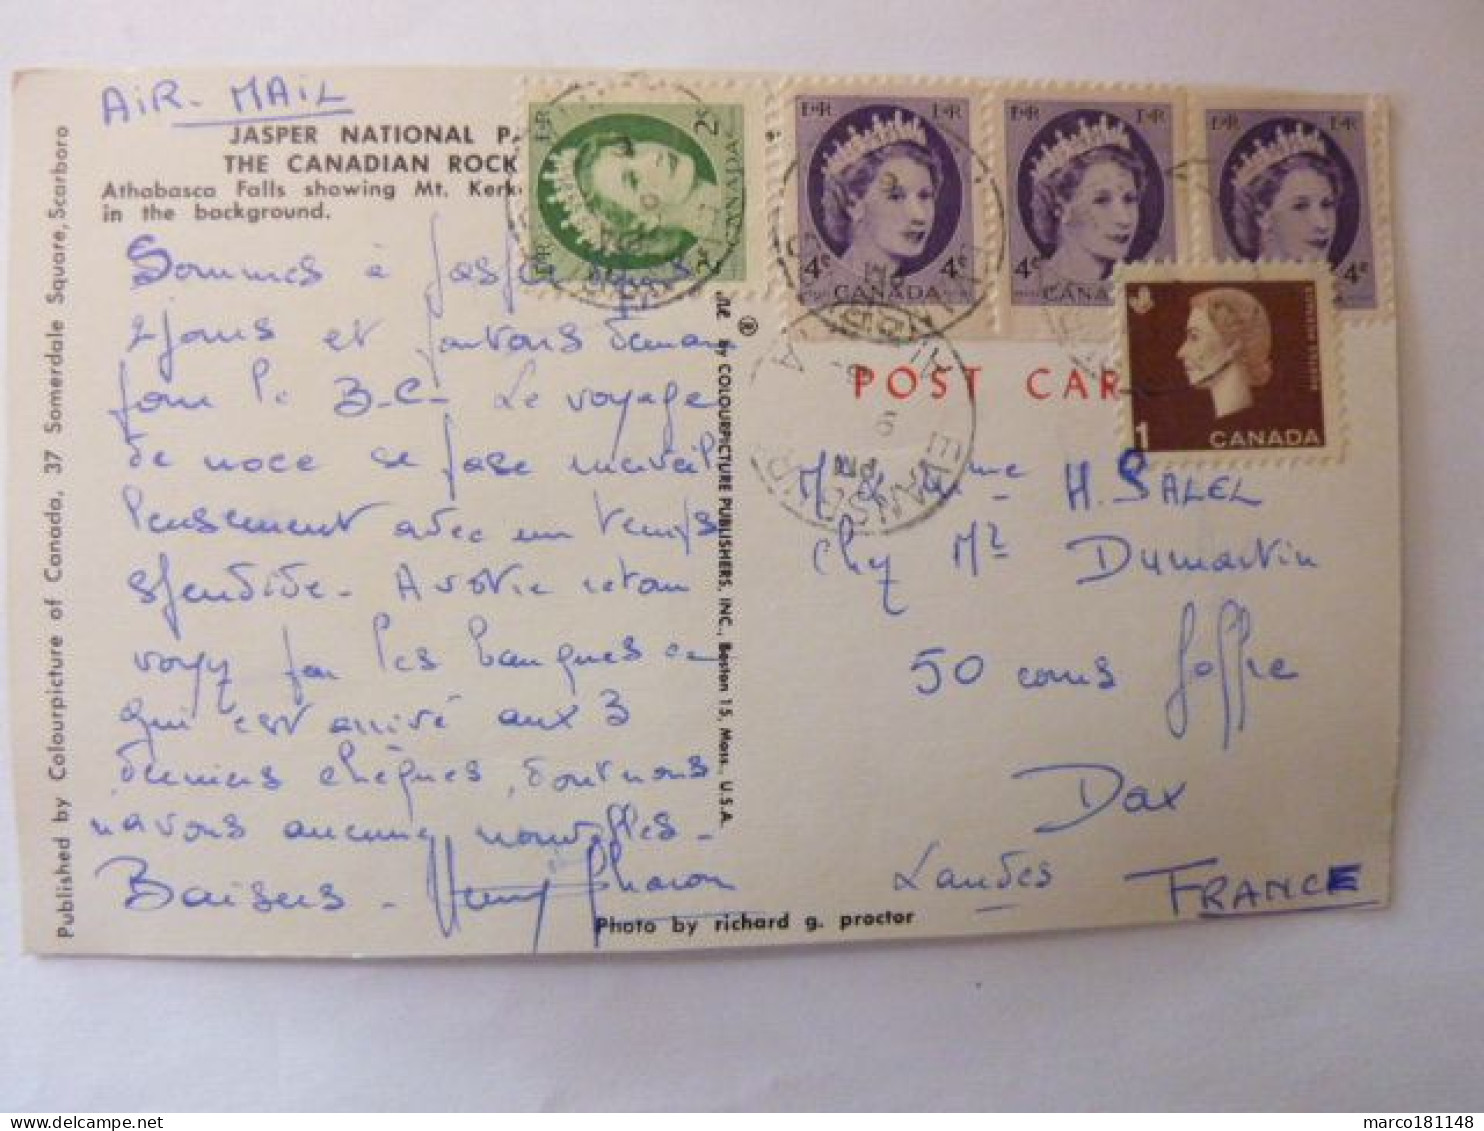 AIR-MAIL
JASPER NATIONAL P
THE CANADIAN ROCK
Athabasca Falls showing Mt. Kerk
in the background.
Sommes à Jasper depuis
2 jours et partons demain
pour le B.C. Le voyage
de noce se passe merveil
leusement avec un temps
splendide. A votre retour
voyez par les banques ce
qui est arrivé aux 3
derniers chèques, dont nous
n'avons aucune nouvelles.
Baisers -
Published by Colourpicture of Canada, 37 Somerdale Square, Scarboro
by COLOURPICTURE PUBLISHERS, INC., Boston 15, Mass., U.S.A.
®
Photo by richard g. proctor
E R
2c 2c
CANADA
E R E R
4c 4c
CANADA
E R E R
4c
CANA
E R E R
4c
1 CANADA
POSTES POSTAGE
POST CAR
M & Mme H. SALEL
Chez Mr Dumartin
50 cours Joffre
Dax
Landes
FRANCE
marco181148